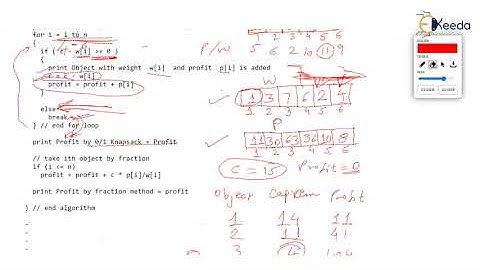 for i = 1 to n
{
if ( c - w[i] >= 0 )
{
print Object with weight w[i] and profit p[i] is added
c = c - w[i]
profit = profit + p[i]
}
else
break
} // end for loop
print Profit by 0/1 Knapsack = Profit
// take ith object by fraction
if (i <= n)
profit = profit + c * p[i]/w[i]
print Profit by fraction method = profit
} // end algorithm
1 2 3 4 5 6
P/W 5 6 2 10 11 9
W
1 3 7 6 2
1 2 3 4 5 6
P
11 30 63 36 10 8
1 2 3 4 5 6
C = 15 Profit = 0
Object Cap Rem Profit
1 14 11
2 11 41
3 4
Ekeeda